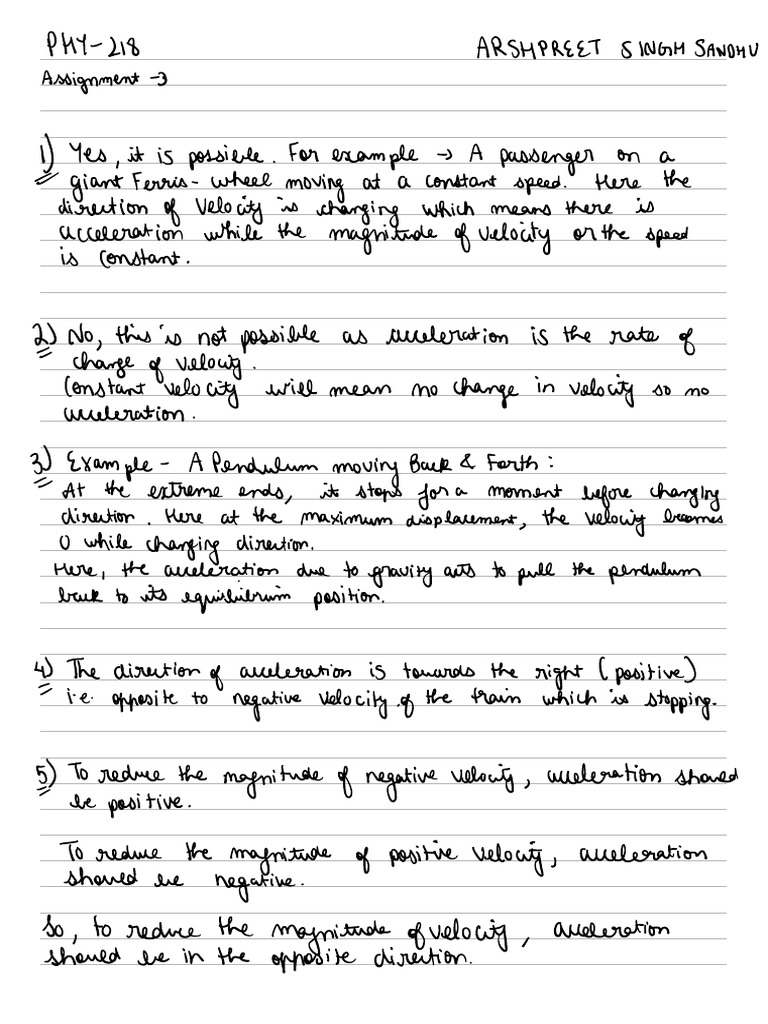 PHY-218 ARSHPREET SINGH SANDHU
Assignment -3
1) Yes, it is possible. For example → A passenger on a
giant Ferris-wheel moving at a constant speed. Here the
direction of Velocity is changing which means there is
acceleration while the magnitude of velocity or the speed
is constant.
2) No, this is not possible as acceleration is the rate of
change of velocity.
Constant velocity will mean no change in velocity so no
acceleration.
3) Example - A Pendulum moving Back & Forth:
At the extreme ends, it stops for a moment before changing
direction. Here at the maximum displacement, the velocity becomes
0 while changing direction.
Here, the acceleration due to gravity acts to pull the pendulum
back to its equilibrium position.
4) The direction of acceleration is towards the right (positive)
i.e. opposite to negative velocity of the train which is stopping.
5) To reduce the magnitude of negative velocity, acceleration should
be positive.
To reduce the magnitude of positive velocity, acceleration
should be negative.
So, to reduce the magnitude of velocity, acceleration
should be in the opposite direction.